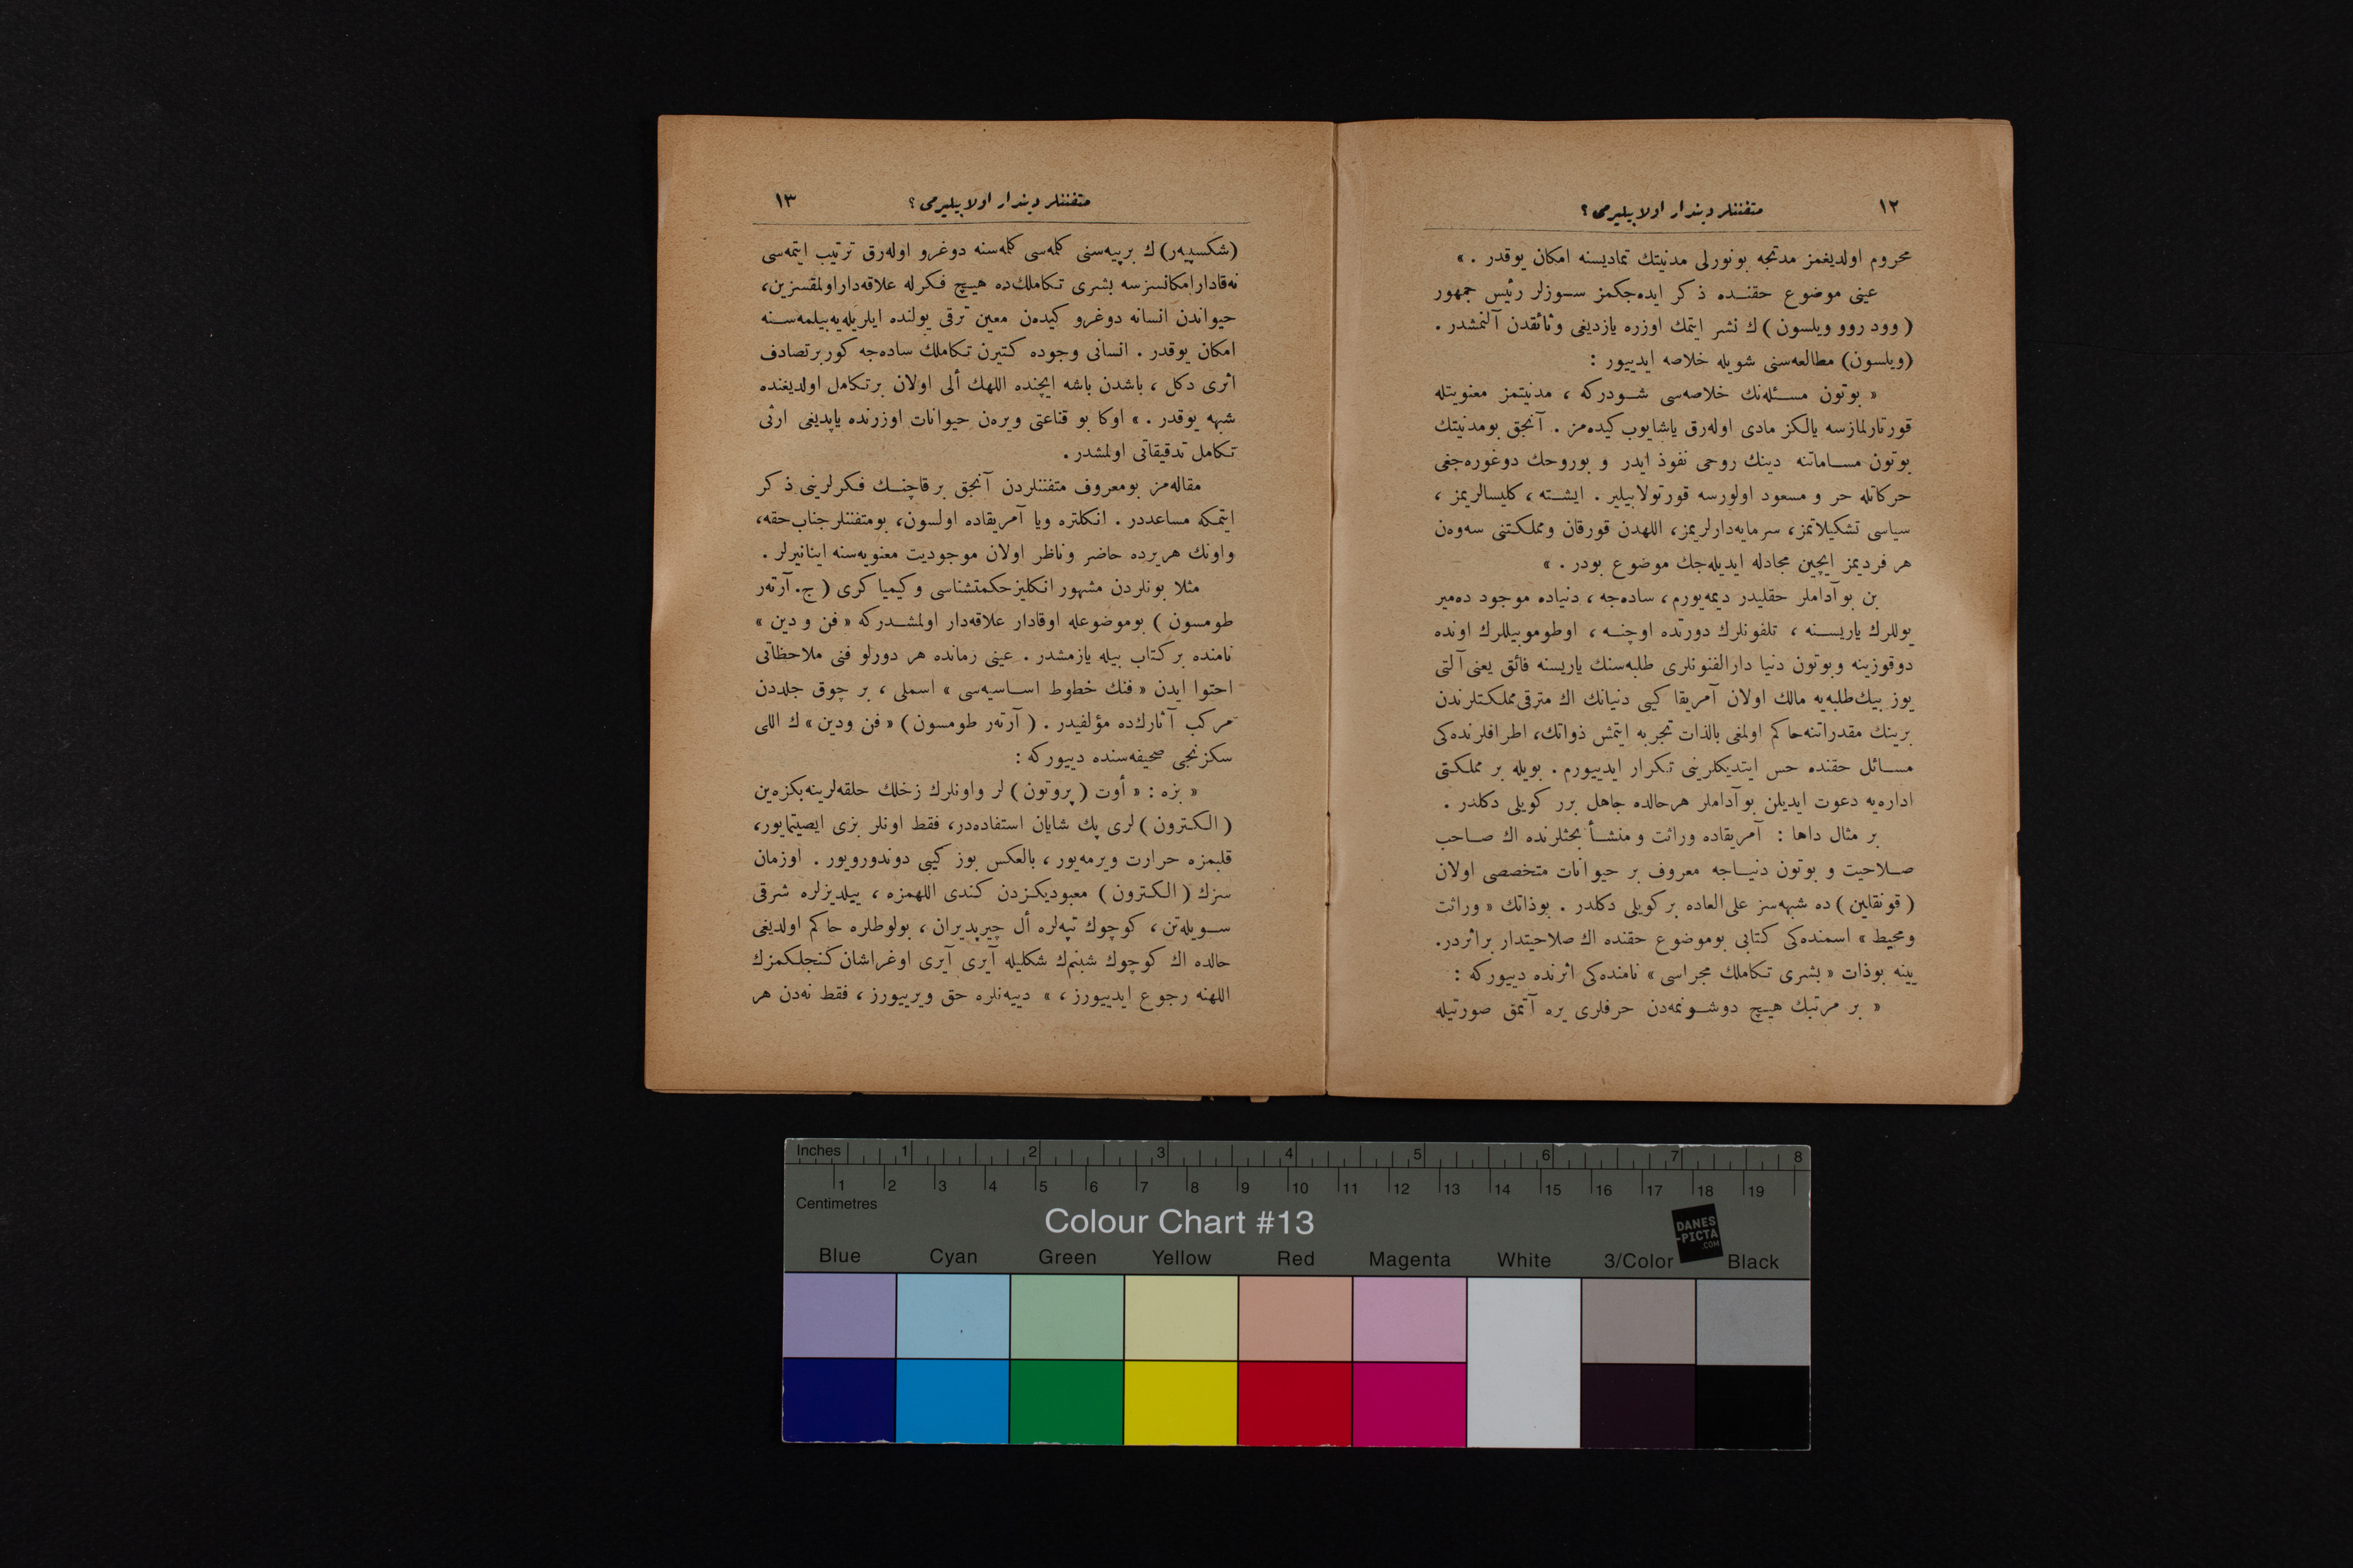 ١٢
متفننلر دیندار اولابیلیرمی ؟
محروم اولدیغمز مدتجه بونورلی مدنیتك تمادیسنه امكان یوقدر . »
عینی موضوع حقنـده ذكر ایده‌جكمز سـوزلر رئیس جمهور
( وود روو ویلسون ) ك نشر ایتمك اوزره یازدیغی وثائقدن آلنمشدر .
(ویلسون) مطالعه‌سنی شویله خلاصه ایدییور :
« بوتون مسـئله‌نك خلاصه‌سی شـودركه ، مدنیتمز معنویتله
قورتارلمازسه یالكز مادی اوله‌رق یاشایوب كیده‌مز . آنجق بومدنیتك
بوتون مسـاماتنه دینك روحی نفوذ ایدر و بوروحك دوغوره‌جغی
حركاتله حر و مسعود اولورسه قورتولابیلیر . ایشـته ، كلیسالریمز ،
سیاسی تشكیلاتمز ، سرمایه‌دارلریمز ، اللهدن قورقان ومملكتنی سه‌وه‌ن
هر فردیمز ایچین مجادله ایدیله‌جك موضوع بودر . »
بن بوآداملر حقلیدر دیمه‌یورم ، ساده‌جه ، دنیاده موجود ده‌میر
یوللرك یاریسـنه ، تلفونلرك دورتده اوچنـه ، اوطوموبیللرك اونده
دوقوزینه وبوتون دنیا دارالفنونلری طلبه‌سنك یاریسنه فائق یعنی آلتی
یوز بیك طلبه‌یه مالك اولان آمریقا كیبی دنیانك اك مترقی مملكتلرندن
برینك مقدراتنه حاكم اولمغی بالذات تجربه ایتمش ذواتك ، اطرافلرنده‌كی
مسـائل حقنده حس ایتدیكلرینی تكرار ایدییورم . بویله بر مملكتی
اداره‌یه دعوت ایدیلن بوآداملر هرحالده جاهل برر كویلی دكلدر .
بر مثال داها : آمریقاده وراثت و منشـأ بحثلرنده اك صـاحب
صـلاحیت و بوتون دنیـاجه معروف بر حیوانات متخصصی اولان
( قونقلین ) ده شبهه‌سز علی‌العاده بر كویلی دكلدر . بوذاتك « وراثت
ومحیط » اسمنده‌كی كتابی بوموضوع حقنده اك صلاحیتدار براثردر.
یینه بوذات « بشری تكاملك مجراسی » نامنده‌كی اثرنده دییوركه :
« بر مرتبك هیچ دوشـونمه‌دن حرفلری یره آتمق صورتیله
١٣
متفننلر دیندار اولابیلیرمی ؟
(شكسپیه‌ر) ك برپیه‌سنی كلمه‌سی كلمه‌سنه دوغرو اوله‌رق ترتیب ایتمه‌سی
نه‌قادار امكانسزسه بشری تكاملك‌ده هیـچ فكرله علاقه‌دار اولمقسزین،
حیواندن انسانه دوغرو كیده‌ن معین ترقی یولنده ایلریله‌یه‌بیلمه‌سـنه
امكان یوقدر . انسانی وجوده كتیرن تكاملك ساده‌جه كور برتصادف
اثری دكل ، باشدن باشه ایچنده اللهك ألی اولان برتكامل اولدیغنده
شبهه یوقدر . » اوكا بو قناعتی ویره‌ن حیوانات اوزرنده یاپدیغی ارثی
تكامل تدقیقاتی اولمشدر .
مقاله‌مز بومعروف متفننلردن آنجق برقاچنـك فكرلرینی ذكر
ایتمكه مساعددر . انكلتره ویا آمریقاده اولسون، بومتفننلر جناب حقه،
واونك هریرده حاضر وناظر اولان موجودیت معنویه‌سنه اینانیرلر .
مثلا بونلردن مشهور انكلیز حكمتشناسی وكیمیاكری ( ج. آرته‌ر
طومسون ) بوموضوعله اوقادار علاقه‌دار اولمشـدركه « فن و دین »
نامنده بركتاب بیله یازمشدر . عینی زمانده هر دورلو فنی ملاحظاتی
احتوا ایدن « فنك خطوط اسـاسیه‌سی » اسملی ، بر چوق جلددن
مركب آثارك‌ده مؤلفیدر . ( آرته‌ر طومسون ) « فن ودین » ك اللی
سكزنجی صحیفه‌سنده دییوركه :
« بزه : « أوت ( پروتون ) لر واونلرك زخلك حلقه‌لرینه بكزه‌ین
( الكترون ) لری پك شایان استفاده‌در، فقط اونلر بزی ایصیتمایور،
قلبمزه حرارت ویرمه‌یور ، بالعكس بوز كیبی دوندورویور . اوزمان
سزك ( الكترون ) معبودیكـزدن كندی اللهمزه ، ییلدیزلره شرقی
سـویله‌تن ، كوچوك تپه‌لره أل چیرپدیران ، بولوطلره حاكم اولدیغی
حالده اك كوچوك شبنمك شكلیله آیری آیری اوغراشان كنجلكمزك
اللهنه رجوع ایدییورز ، » دییه‌نلره حق ویرییورز ، فقط نه‌دن هر
Inches 1 2 3 4 5 6 7 8
1 2 3 4 5 6 7 8 9 10 11 12 13 14 15 16 17 18 19
Centimetres
Colour Chart #13
DANES
-PICTA
.COM
Blue Cyan Green Yellow Red Magenta White 3/Color Black